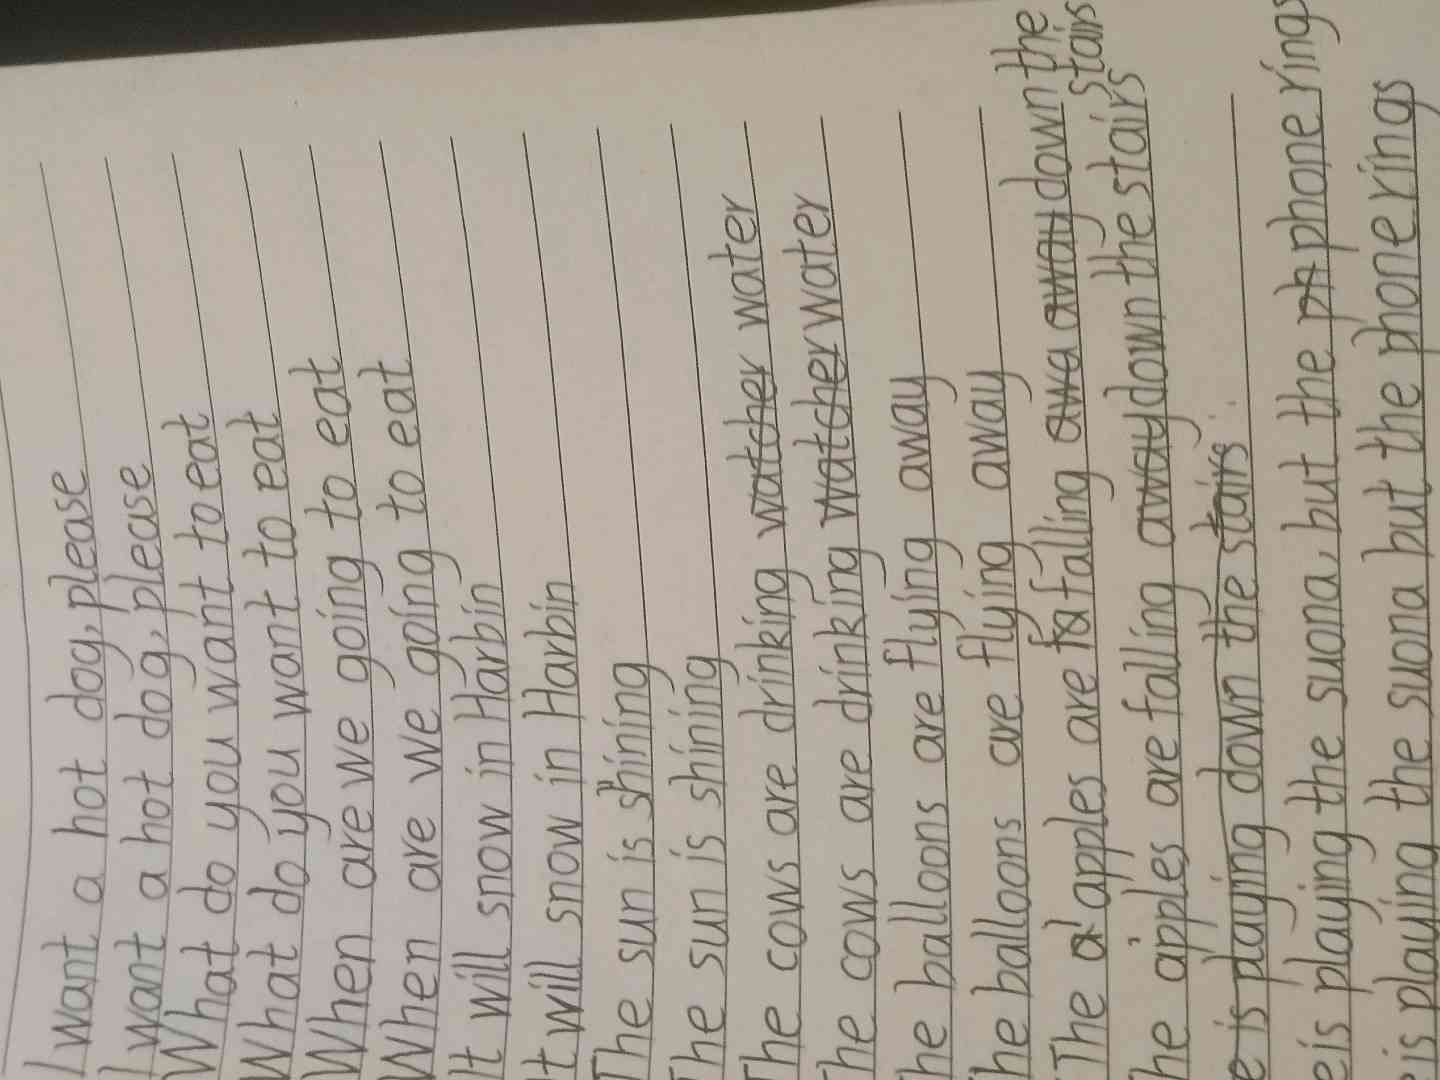 I want a hot dog, please
I want a hot dog, please
What do you want to eat
What do you want to eat
When are we going to eat
When are we going to eat
It will snow in Harbin
It will snow in Harbin
The sun is shining
The sun is shining
The cows are drinking watcher water
The cows are drinking watcher water
The balloons are flying away
The balloons are flying away
The a apples are fa falling awa away down the stairs
The apples are falling away down the stairs
e is playing down the stairs
e is playing the suona, but the ph phone rings
is playing the suona but the phone rings